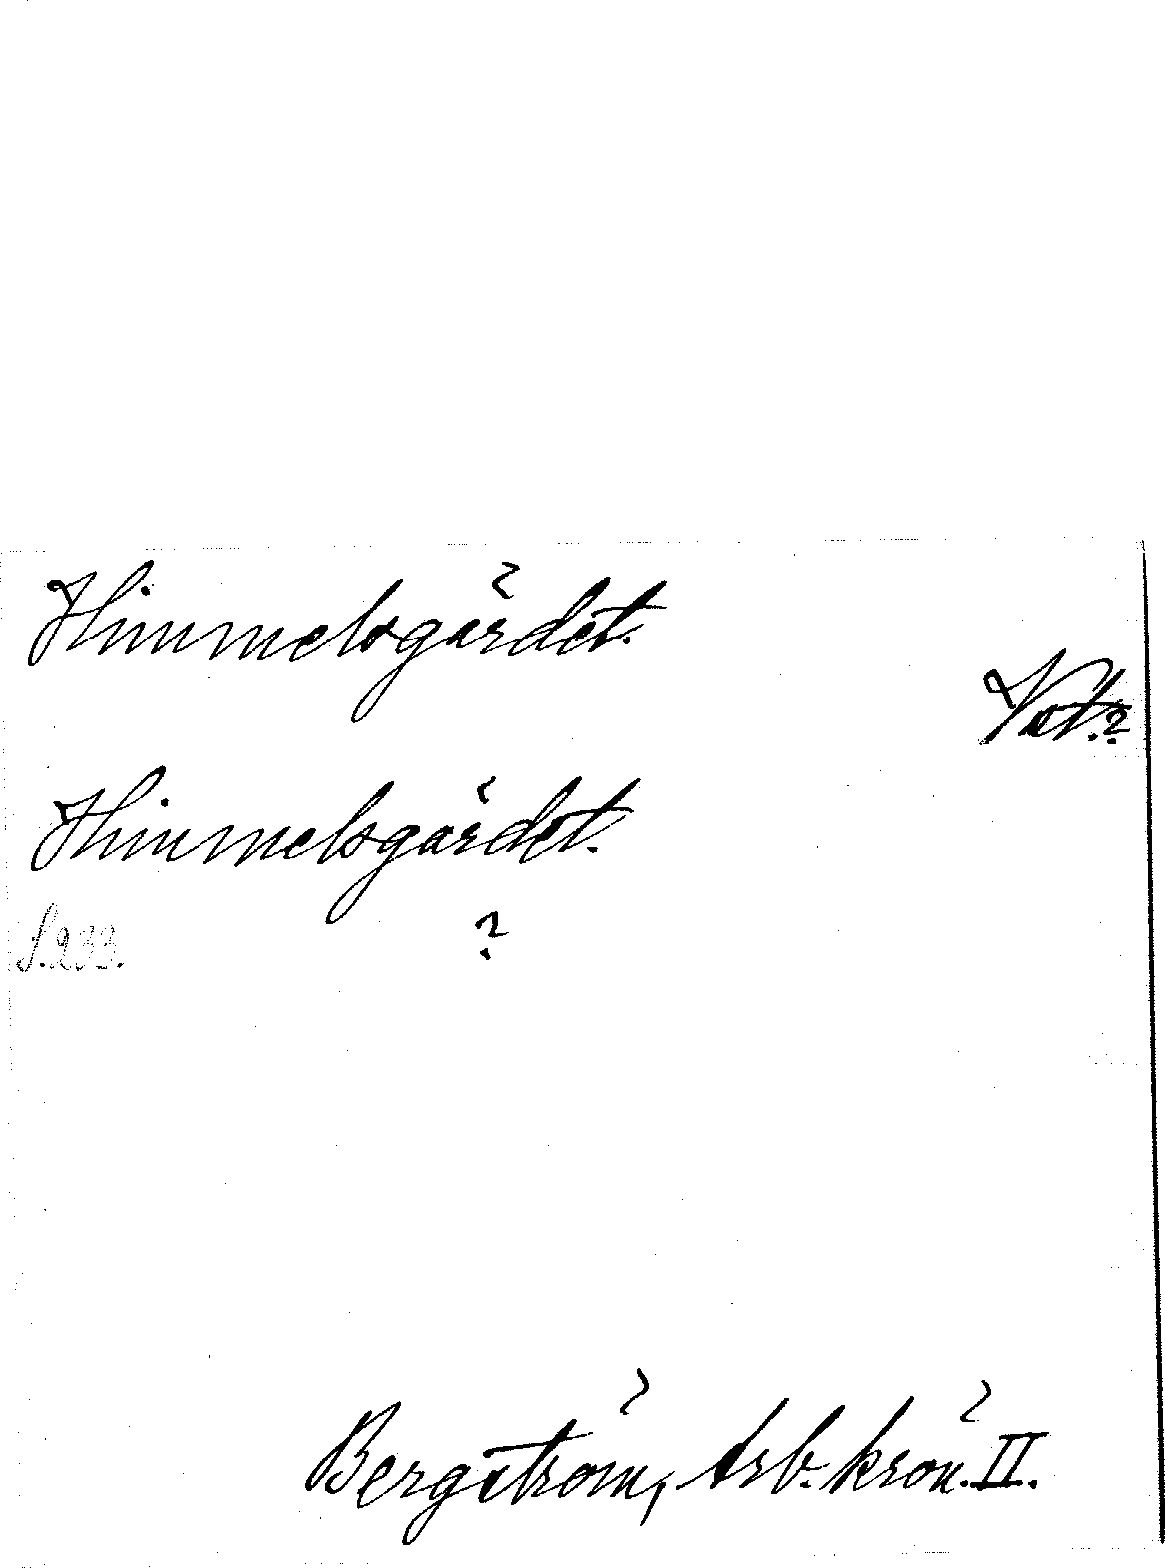 Himmelsgärdet.
Nat.?
Himmelsgärdet.
S.233.
?
Bergström, Arb. krön. II.